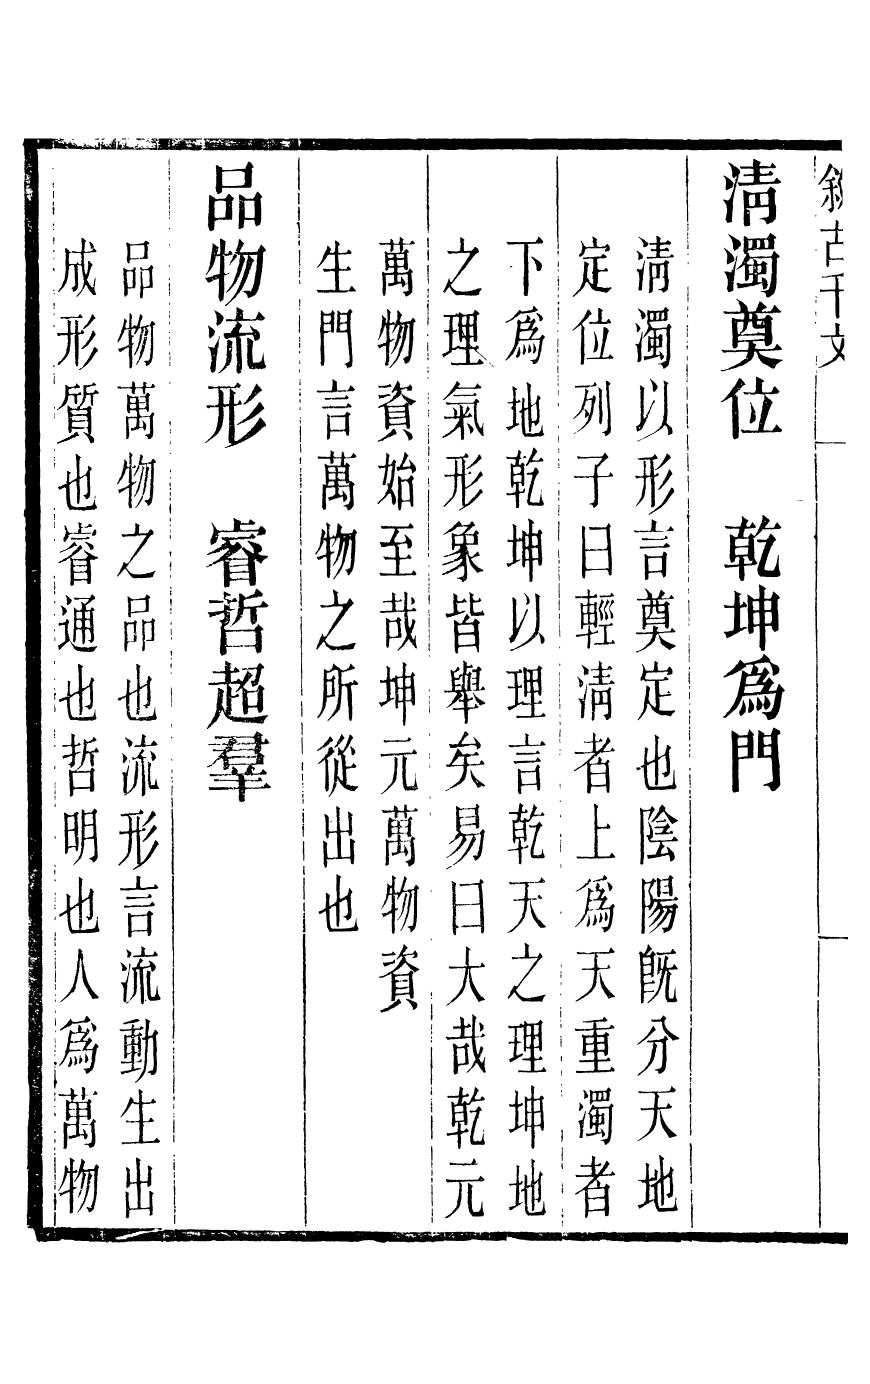 敘古千文
清濁奠位　乾坤爲門
清濁以形言奠定也陰陽旣分天地
定位列子曰輕清者上爲天重濁者
下爲地乾坤以理言乾天之理坤地
之理氣形象皆舉矣易曰大哉乾元
萬物資始至哉坤元萬物資
生門言萬物之所從出也
品物流形　睿哲超羣
品物萬物之品也流形言流動生出
成形質也睿通也哲明也人爲萬物